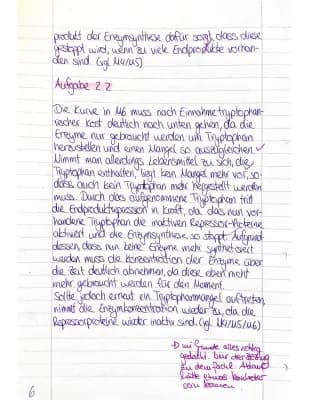 produkt der Enzymsynthese dafür sorgt, dass diese
gestoppt wird, wenn zu viele Endprodukte vorhan-
den sind. (vgl. M4/M5)
Aufgabe 2.2
Die Kurve in M6 muss nach Einnahme tryptophan-
reicher Kost deutlich nach unten gehen, da die
Enzyme nur gebraucht werden um Tryptophan
herzustellen und einen Mangel so auszugleichen.
Nimmt man allerdings Lebensmittel zu sich, die
Tryptophan enthalten, liegt kein Mangel mehr vor, so-
dass auch kein Tryptophan mehr hergestellt werden
muss. Durch das aufgenommene Tryptophan tritt
die Endproduktrepression in Kraft, da das nun vor-
handene Tryptophan die inaktiven Repressor-Proteine
aktiviert und die Enzymsynthese so stoppt. Aufgrund-
dessen, dass nun keine Enzyme mehr synthetisiert
werden muss die Konzentration der Enzyme über
die Zeit deutlich abnehmen, da diese eben nicht
mehr gebraucht werden für den Moment.
Sollte jedoch erneut ein Tryptophanmangel auftreten,
nimmt die Enzymkonzentration wieder zu, da die
Repressorproteine wieder inaktiv sind. (vgl. M4/M5/M6)
im Grunde alles richtig
gedacht. Nur der Bezug
zu dem fachl. Ablauf
hätte etwas
sein können
6